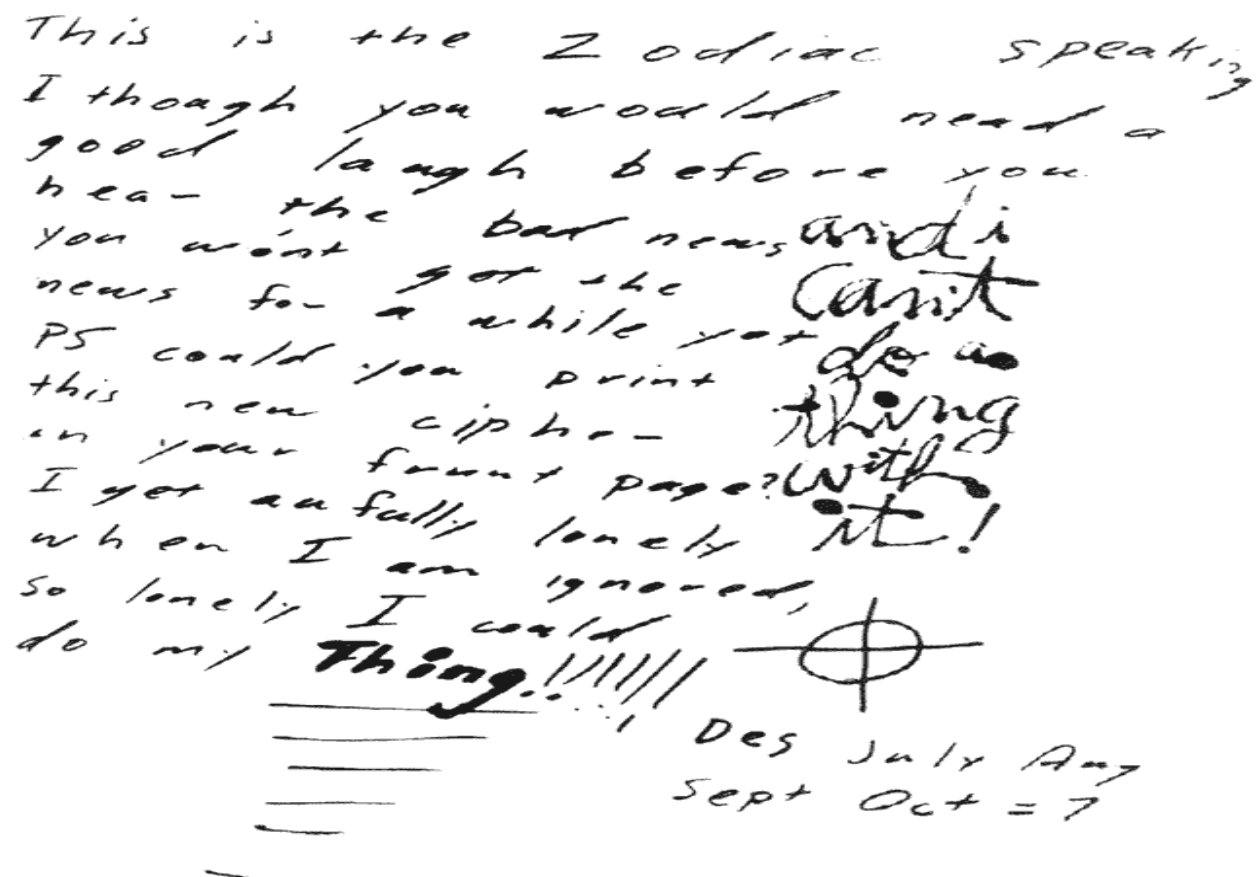 This is the Zodiac speaking
I though you would nead a
good laugh before you
hear the bad news
you won't get the
news for a while yet
PS could you print
this new cipher
on your frunt page?
I get aufully lonely
when I am ignored,
so lonely I could
do my Thing!!!!!!
and i
can't
do a
thing
with
it!
Des July Aug
Sept Oct = 7